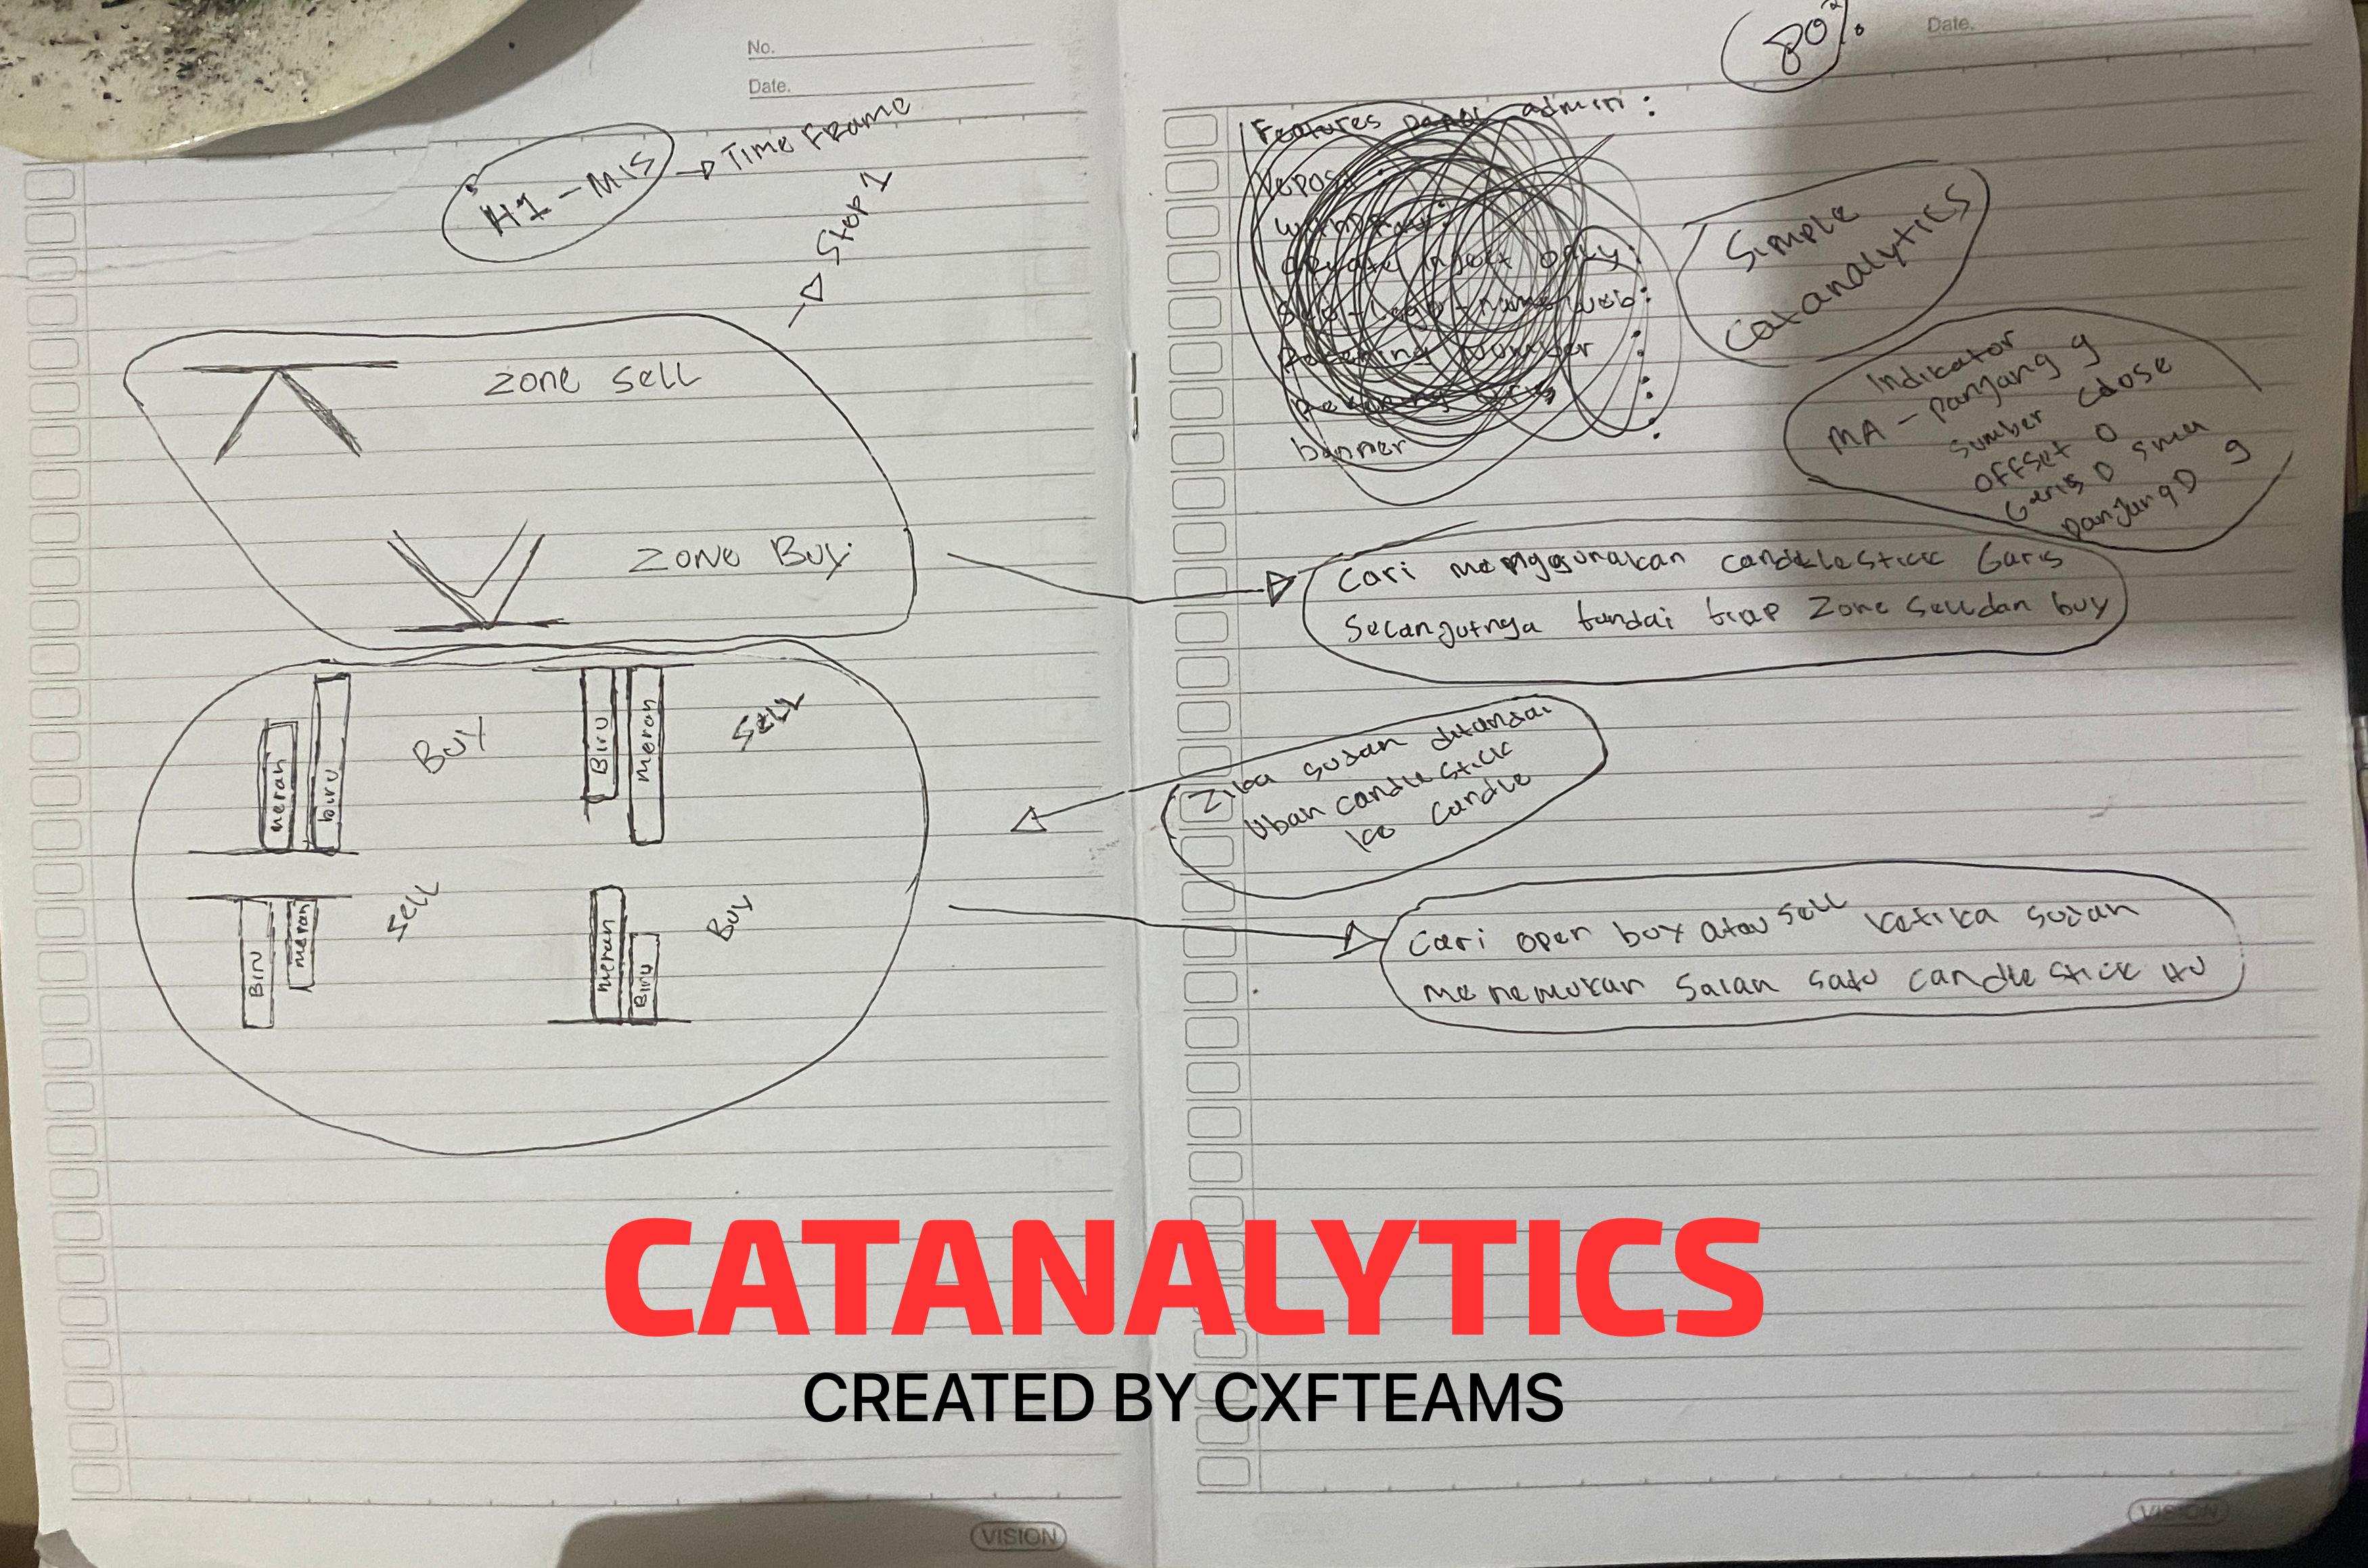 No.
Date.
H1 - M15 → Time FRame
→ Step 1
Zone Sell
Zone Buy
meran
biru
Buy
Biru
meran
Sell
Biru
meran
Sell
meran
Biru
Buy
80%
Date.
Features admin :
banner
Simple
Catanalytics
Indikator
MA - Panjang 9
Sumber Close
OFFset 0
Garis D sma
panjang D 9
Cari menggunakan candelestick Garis
Selanjutnya tandai tiap Zone Sell dan buy
Zika sudan ditandai
Uban candlestick
ke candle
Cari open buy atau sell ketika sudan
menemukan salan satu candlestick itu
CATANALYTICS
CREATED BY CXFTEAMS
VISION
VISION